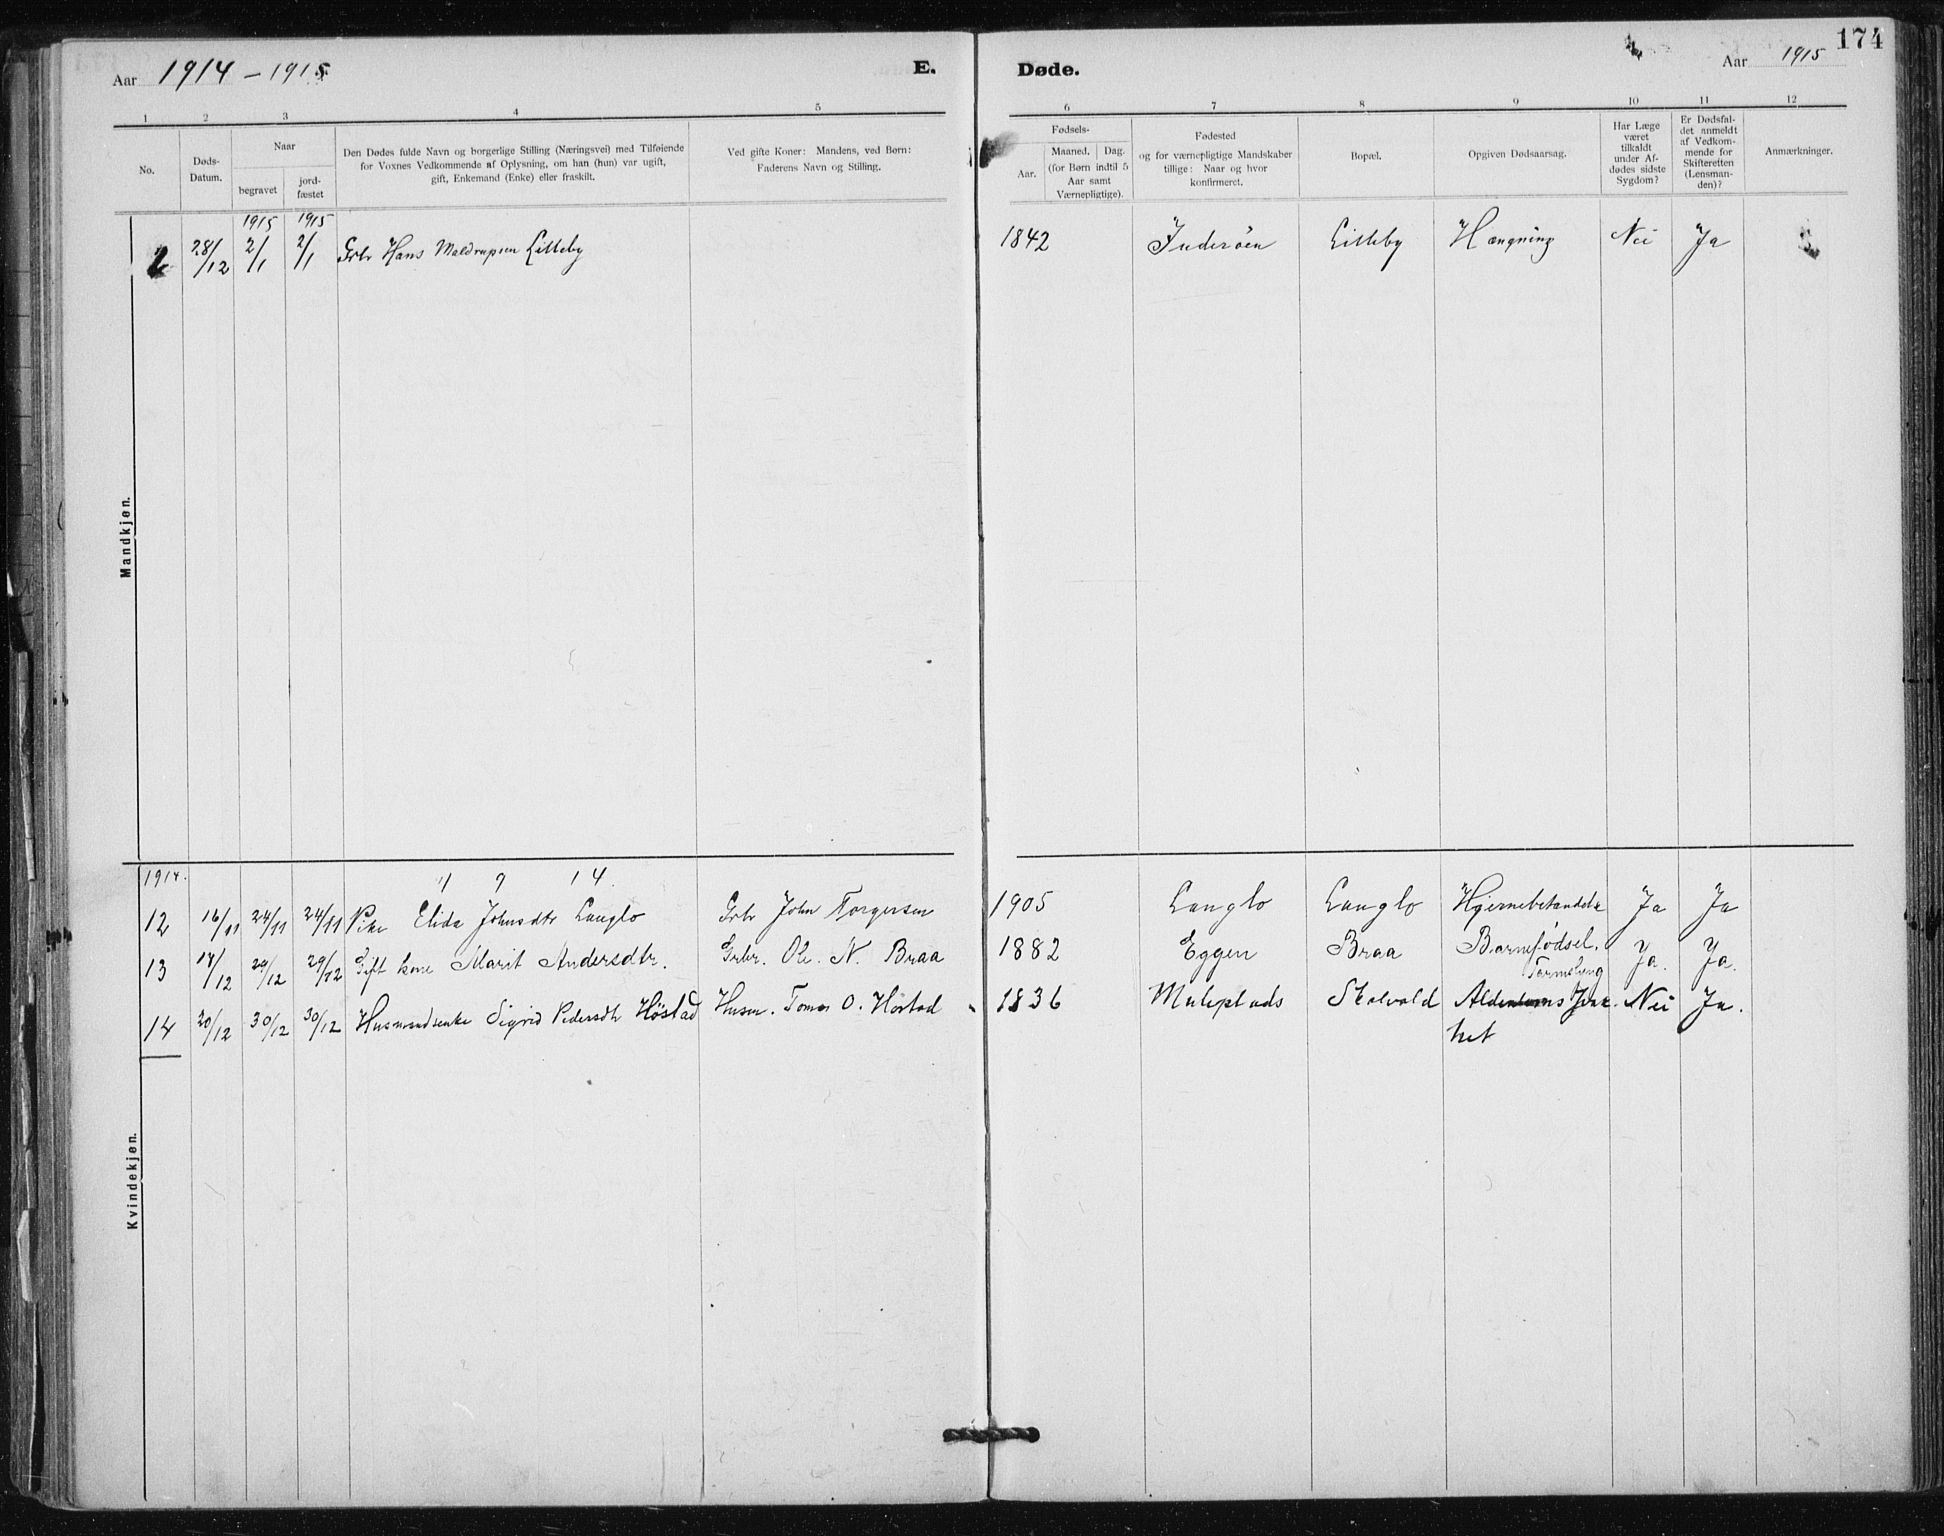 Aar 1914 – 1915
E.
Døde.
Aar 1915
174
1 2 3 4 5 6 7 8 9 10 11 12
No.
Døds-
Datum.
Naar
begravet
jord-
fæstet
Den Dødes fulde Navn og borgerlige Stilling (Næringsvei) med Tilføiende
for Voxnes Vedkommende af Oplysning, om han (hun) var ugift,
gift, Enkemand (Enke) eller fraskilt.
Ved gifte Koner: Mandens, ved Børn:
Faderens Navn og Stilling.
Fødsels-
Aar.
Maaned. Dag.
(for Børn indtil 5
Aar samt
Værnepligtige).
Fødested
og for værnepligtige Mandskaber
tillige: Naar og hvor
konfirmeret.
Bopæl.
Opgiven Dødsaarsag.
Har Læge
været
tilkaldt
under Af-
dødes sidste
Sygdom?
Er Dødsfal-
det anmeldt
af Vedkom-
mende for
Skifteretten
(Lensman-
den)?
Anmærkninger.
Mandkjøn.
1915 1915
28/12 2/1 2/1 Grbr Hans Litleby 1842 Inderøen Litleby Hængning Nei Ja
Kvindekjøn.
1914.
1914.
12 16/11 24/11 24/11 Pike Elida Johnsdtr Langlo Grbr John Torgersen 1905 Langlo Langlo Hjernebetændelse Ja Ja
13 17/12 29/12 29/12 Gift kone Marit Andersdtr. Grbr. Ole. N. Braa 1882 Eggen Braa Barnefødsel. Ja. Ja.
Tarmslyng
14 20/12 30/12 30/12 Husmandsenke Sigrid Pedersdtr Høstad Husm. Tomas O. Høstad 1836 Muleplads Skolvold Nei Ja.
het